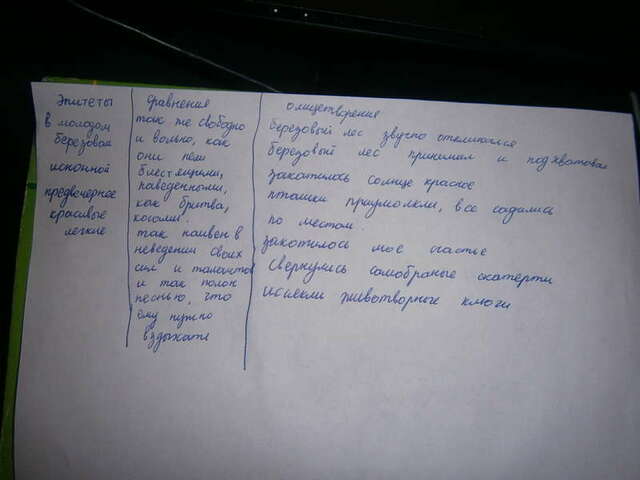 Эпитеты
в молодом
березовая
исконной
предвечернее
красивые
легкие
сравнения
так же свободно
и вольно, как
они пели
блестящими,
наведенными,
как бритва,
косами.
так наивен в
неведении своих
сил и талантов
и так полон
песнью, что
ему нужно
вздыхать
олицетворения
березовый лес звучно откликался
березовый лес принимал и подхватывал
закатилось солнце красное
пташки приумолкли, все садились
по местам.
закотилось мое счастье
свернулись самобраные скатерти
иссякли животворные ключи